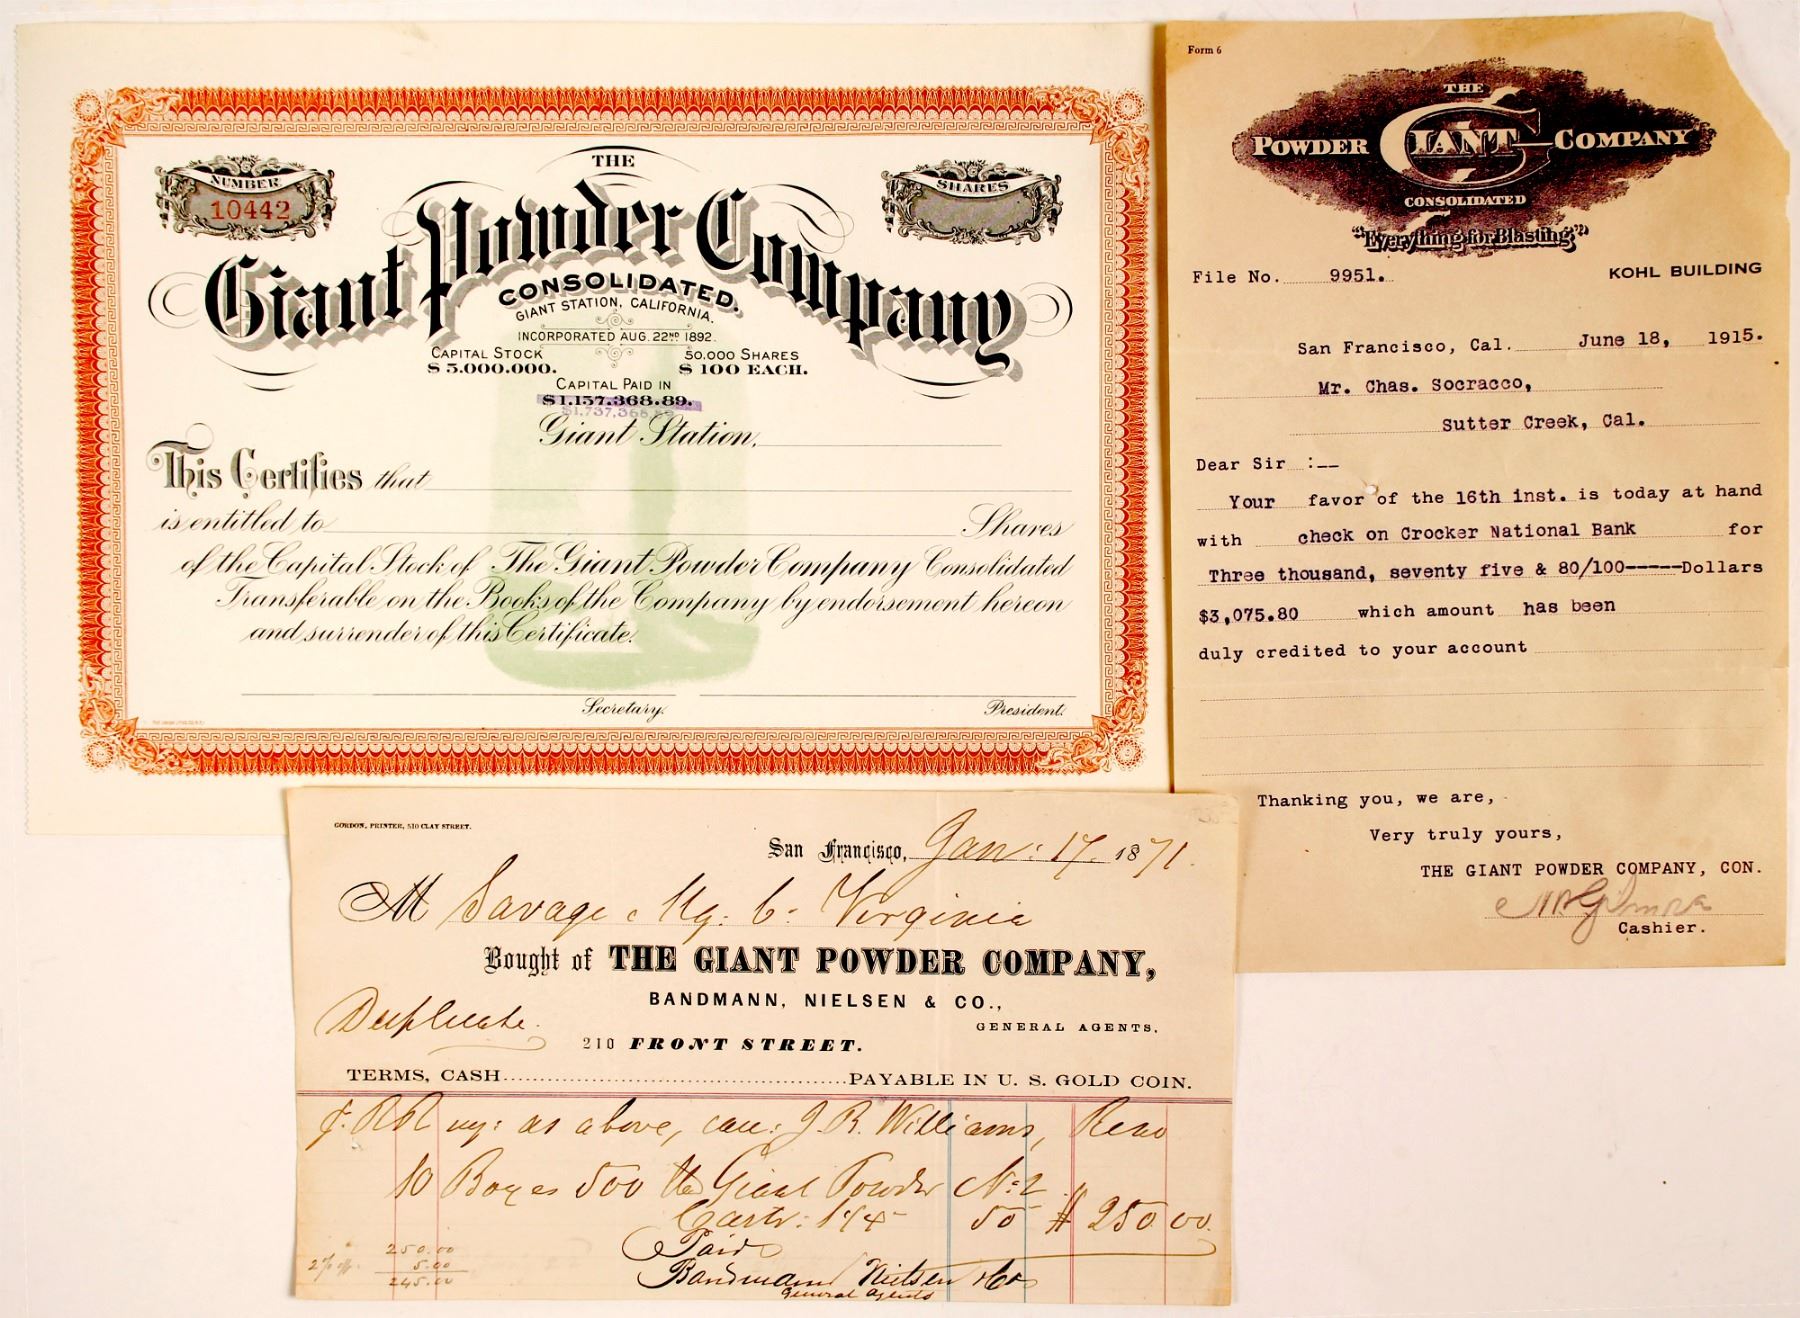 NUMBER
10442
SHARES
THE
Giant Powder Company
CONSOLIDATED.
GIANT STATION, CALIFORNIA.
INCORPORATED AUG. 22ND 1892.
CAPITAL STOCK
$ 5.000.000.
50.000 SHARES
$ 100 EACH.
CAPITAL PAID IN
$1.157.368.89.
$1,737,368.89
Giant Station,
This Certifies that
is entitled to Shares
of the Capital Stock of The Giant Powder Company Consolidated
Transferable on the Books of the Company by endorsement hereon
and surrender of this Certificate.
Secretary.
President.
Form 6
THE
POWDER GIANT COMPANY
CONSOLIDATED
"Everything for Blasting"
File No. 9951.
KOHL BUILDING
San Francisco, Cal. June 18, 1915.
Mr. Chas. Socracco,
Sutter Creek, Cal.
Dear Sir :--
Your favor of the 16th inst. is today at hand
with check on Crocker National Bank for
Three thousand, seventy five & 80/100-----Dollars
$3,075.80 which amount has been
duly credited to your account
Thanking you, we are,
Very truly yours,
THE GIANT POWDER COMPANY, CON.
Cashier.
GORDON, PRINTER, 510 CLAY STREET.
San Francisco, Jan: 17. 1871.
M Savage Mg: C: Virginia
Bought of THE GIANT POWDER COMPANY,
BANDMANN, NIELSEN & CO.,
GENERAL AGENTS.
Duplicate.
210 FRONT STREET.
TERMS, CASH PAYABLE IN U. S. GOLD COIN.
as above, care: J. R. Williams, Reno
10 Boxes 500 lbs Giant Powder No: 2
50 $ 250.00.
Paid
Bandmann Nielsen & Co
General Agents
250.00
2% off 5.00
245.00